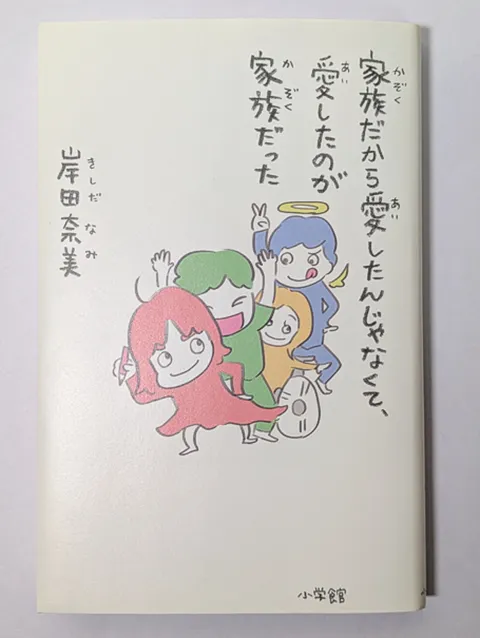 家族だから愛したんじゃなくて、
かぞく
あい
愛したのが
あい
家族だった
かぞく
岸田奈美
きしだなみ
小学館